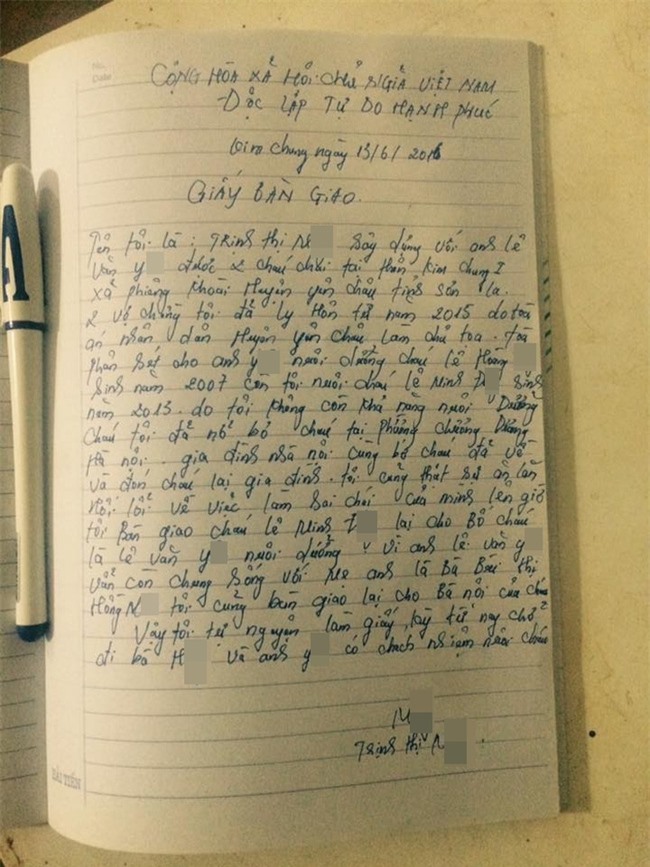 No.
Date
CỘNG HÒA XÃ HỎI CHỦ NGHĨA VIỆT NAM
ĐỘC LẬP TỰ DO HẠNH PHÚC
Kim Chung ngày 13/6/2016
GIẤY BÀN GIAO
Tên tôi là : Trịnh thị N xây dựng với anh lê
văn y được 2 cháu chai tại thôn Kim chung I
xã phiêng khoài Huyện yên châu tỉnh sơn la.
2 vợ chồng tôi đã ly Hôn từ năm 2015 do toà
án nhân dân Huyện yên châu làm chủ toạ. toà
phán sét cho anh y nuôi dưỡng cháu lê Hoàng
sinh năm 2007 còn tôi nuôi cháu lê Minh Đ sinh
năm 2013. do tôi không còn khả năng nuôi Dưỡng
cháu tôi đã nỡ bỏ cháu tại phường chương Dương
Hà nội. gia đình nhà nội cùng bố cháu đã về
và đón cháu lại gia đình. tôi cũng thật sự ăn lăn
hối lỗi về việc làm sai chái của mình lên giờ
tôi Bàn giao cháu lê Minh Đ lại cho Bố cháu
là lê văn y nuôi dưỡng vì anh lê văn y
vẫn còn chung sống với Mẹ anh là Bà Bùi thị
Hồng N tôi cũng bàn giao lại cho Bà nội của cháu
Vậy tôi tự nguyện làm giấy kỳ từ nay chở
đi bà H và anh y có chách nhiệm nuôi cháu
N
Trịnh thị N
HẢI TIẾN
A